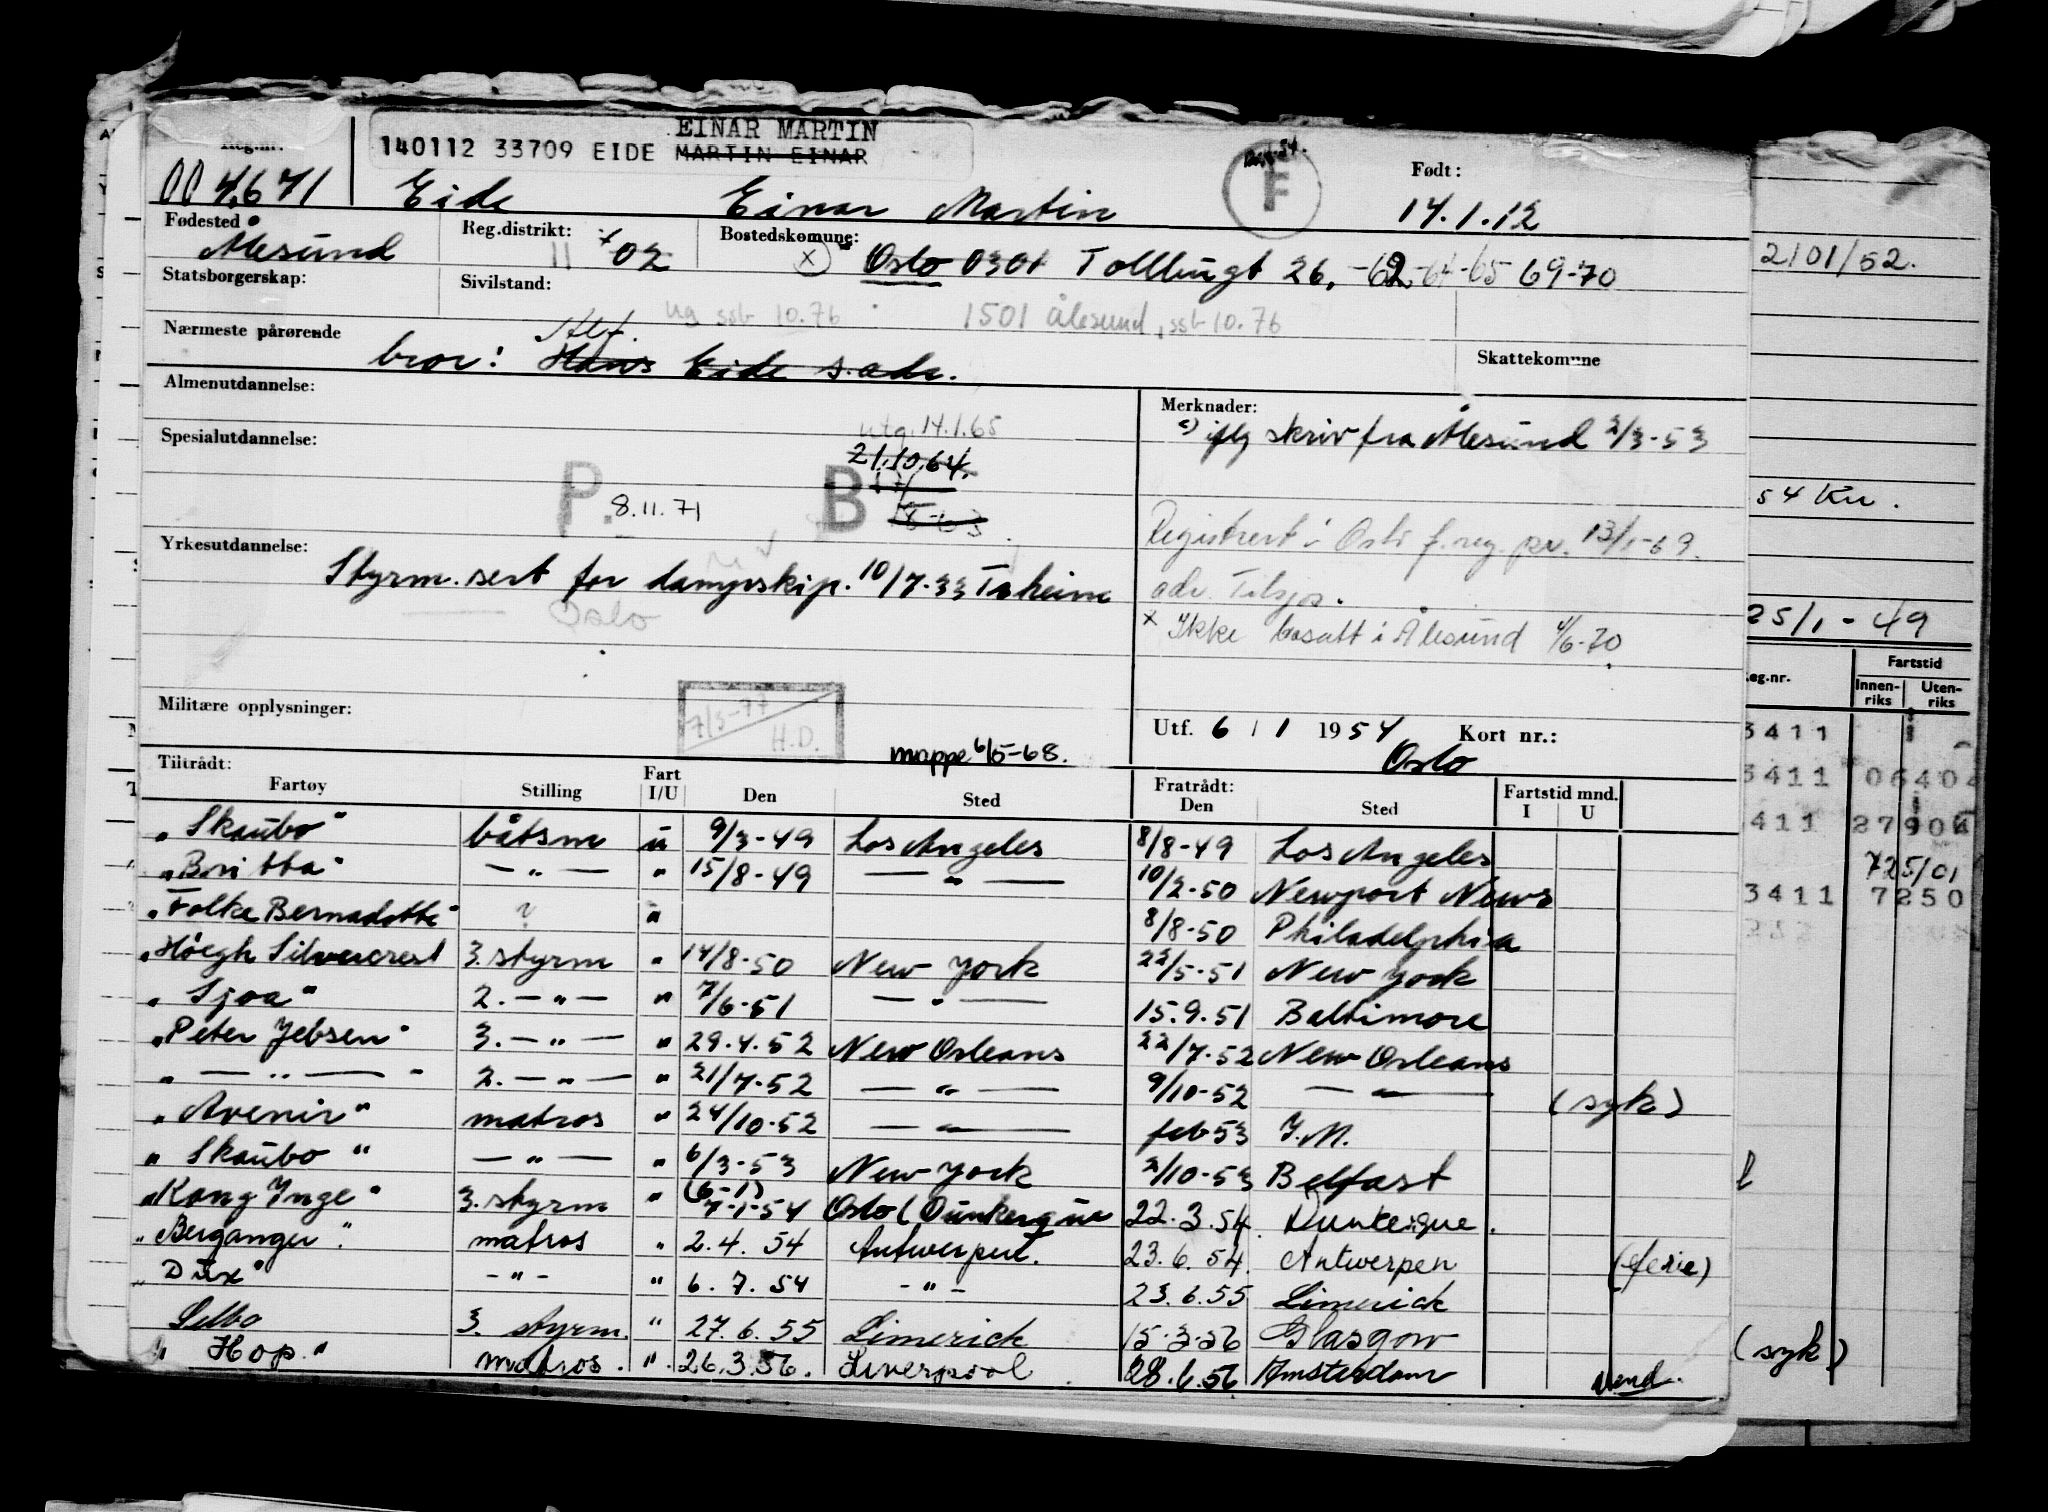 EINAR MARTIN
140112 33709 EIDE MARTIN EINAR
Reg.nr.
004671 Eide Einar Martin
F
Født:
14.1.12
Fødested Reg.distrikt: Bostedskomune:
Ålesund 02 x) Oslo 0301 Tollbugt 26, -62-64-65 69-70
Statsborgerskap: Sivilstand:
ug ssb 10.76 1501 Ålesund, ssb 10.76
Nærmeste pårørende Skattekomune
Alf.
bror: Hans Eide s.adr.
Almenutdannelse: Merknader:
ifly skriv fra Ålesund 2/3-53
utg. 14.1.65
Spesialutdannelse: 21.10.64.
P. 8.11.71 B
Registrert i Oslo f.reg. pr. 13/1-69.
Yrkesutdannelse:
Styrm. sert for dampskip. 10/7-33 Trheim
Oslo
x Ikke bosatt i Ålesund 4/6-70
Militære opplysninger:
7/3-77
H.D.
mappe 6/5-68.
Utf. 6 / 1 1954 Kort nr.:
Oslo
Tiltrådt: Fratrådt:
Fartøy Stilling Fart I/U Den Sted Den Sted Fartstid mnd. I U
"Skaubo" båtsm u 9/3-49 Los Angeles 8/8-49 Los Angeles
"Britta" — " — " 15/8-49 — " — 10/2-50 Newport News
"Folke Bernadotte" ? " 8/8-50 Philadelphia
"Höegh Silvercrest 3. styrm " 14/8-50 New York 22/5-51 New York
"Sjoa" 2. — " — " 7/6-51 — " — 15.9.51 Baltimore
"Peter Jebsen" 3. — " — " 29.4.52 New Orleans 22/7-52 New Orleans
" — " — " 2. — " — " 21/7-52 — " — 9/10-52 — " — (syk)
"Avenir" matros " 24/10-52 — " — feb 53 I.M.
"Skaubo" — " — " 6/3-53 New York 2/10-53 Belfast
"Kong Inge" 3. styrm " (6-1) 7-1-54 Oslo (Dunkerque 22.3.54. Dunkerque.
"Berganger". matros " 2.4.54 Antwerpen. 23.6.54. Antwerpen (ferie)
"Dux" - " - " 6.7.54 - " - 23.6.55 Limerick
Selbo 3. styrm. " 27.6.55 Limerick 15.3.56 Glasgow
"Hop." matros. " 26.3.56. Liverpool 28.6.56 Amsterdam vend.
2101/52.
54 Kr.
25/1-49
Reg.nr. Fartstid
Innen-riks Uten-riks
3411
3411
411
725/01
3411 7250
(syk)